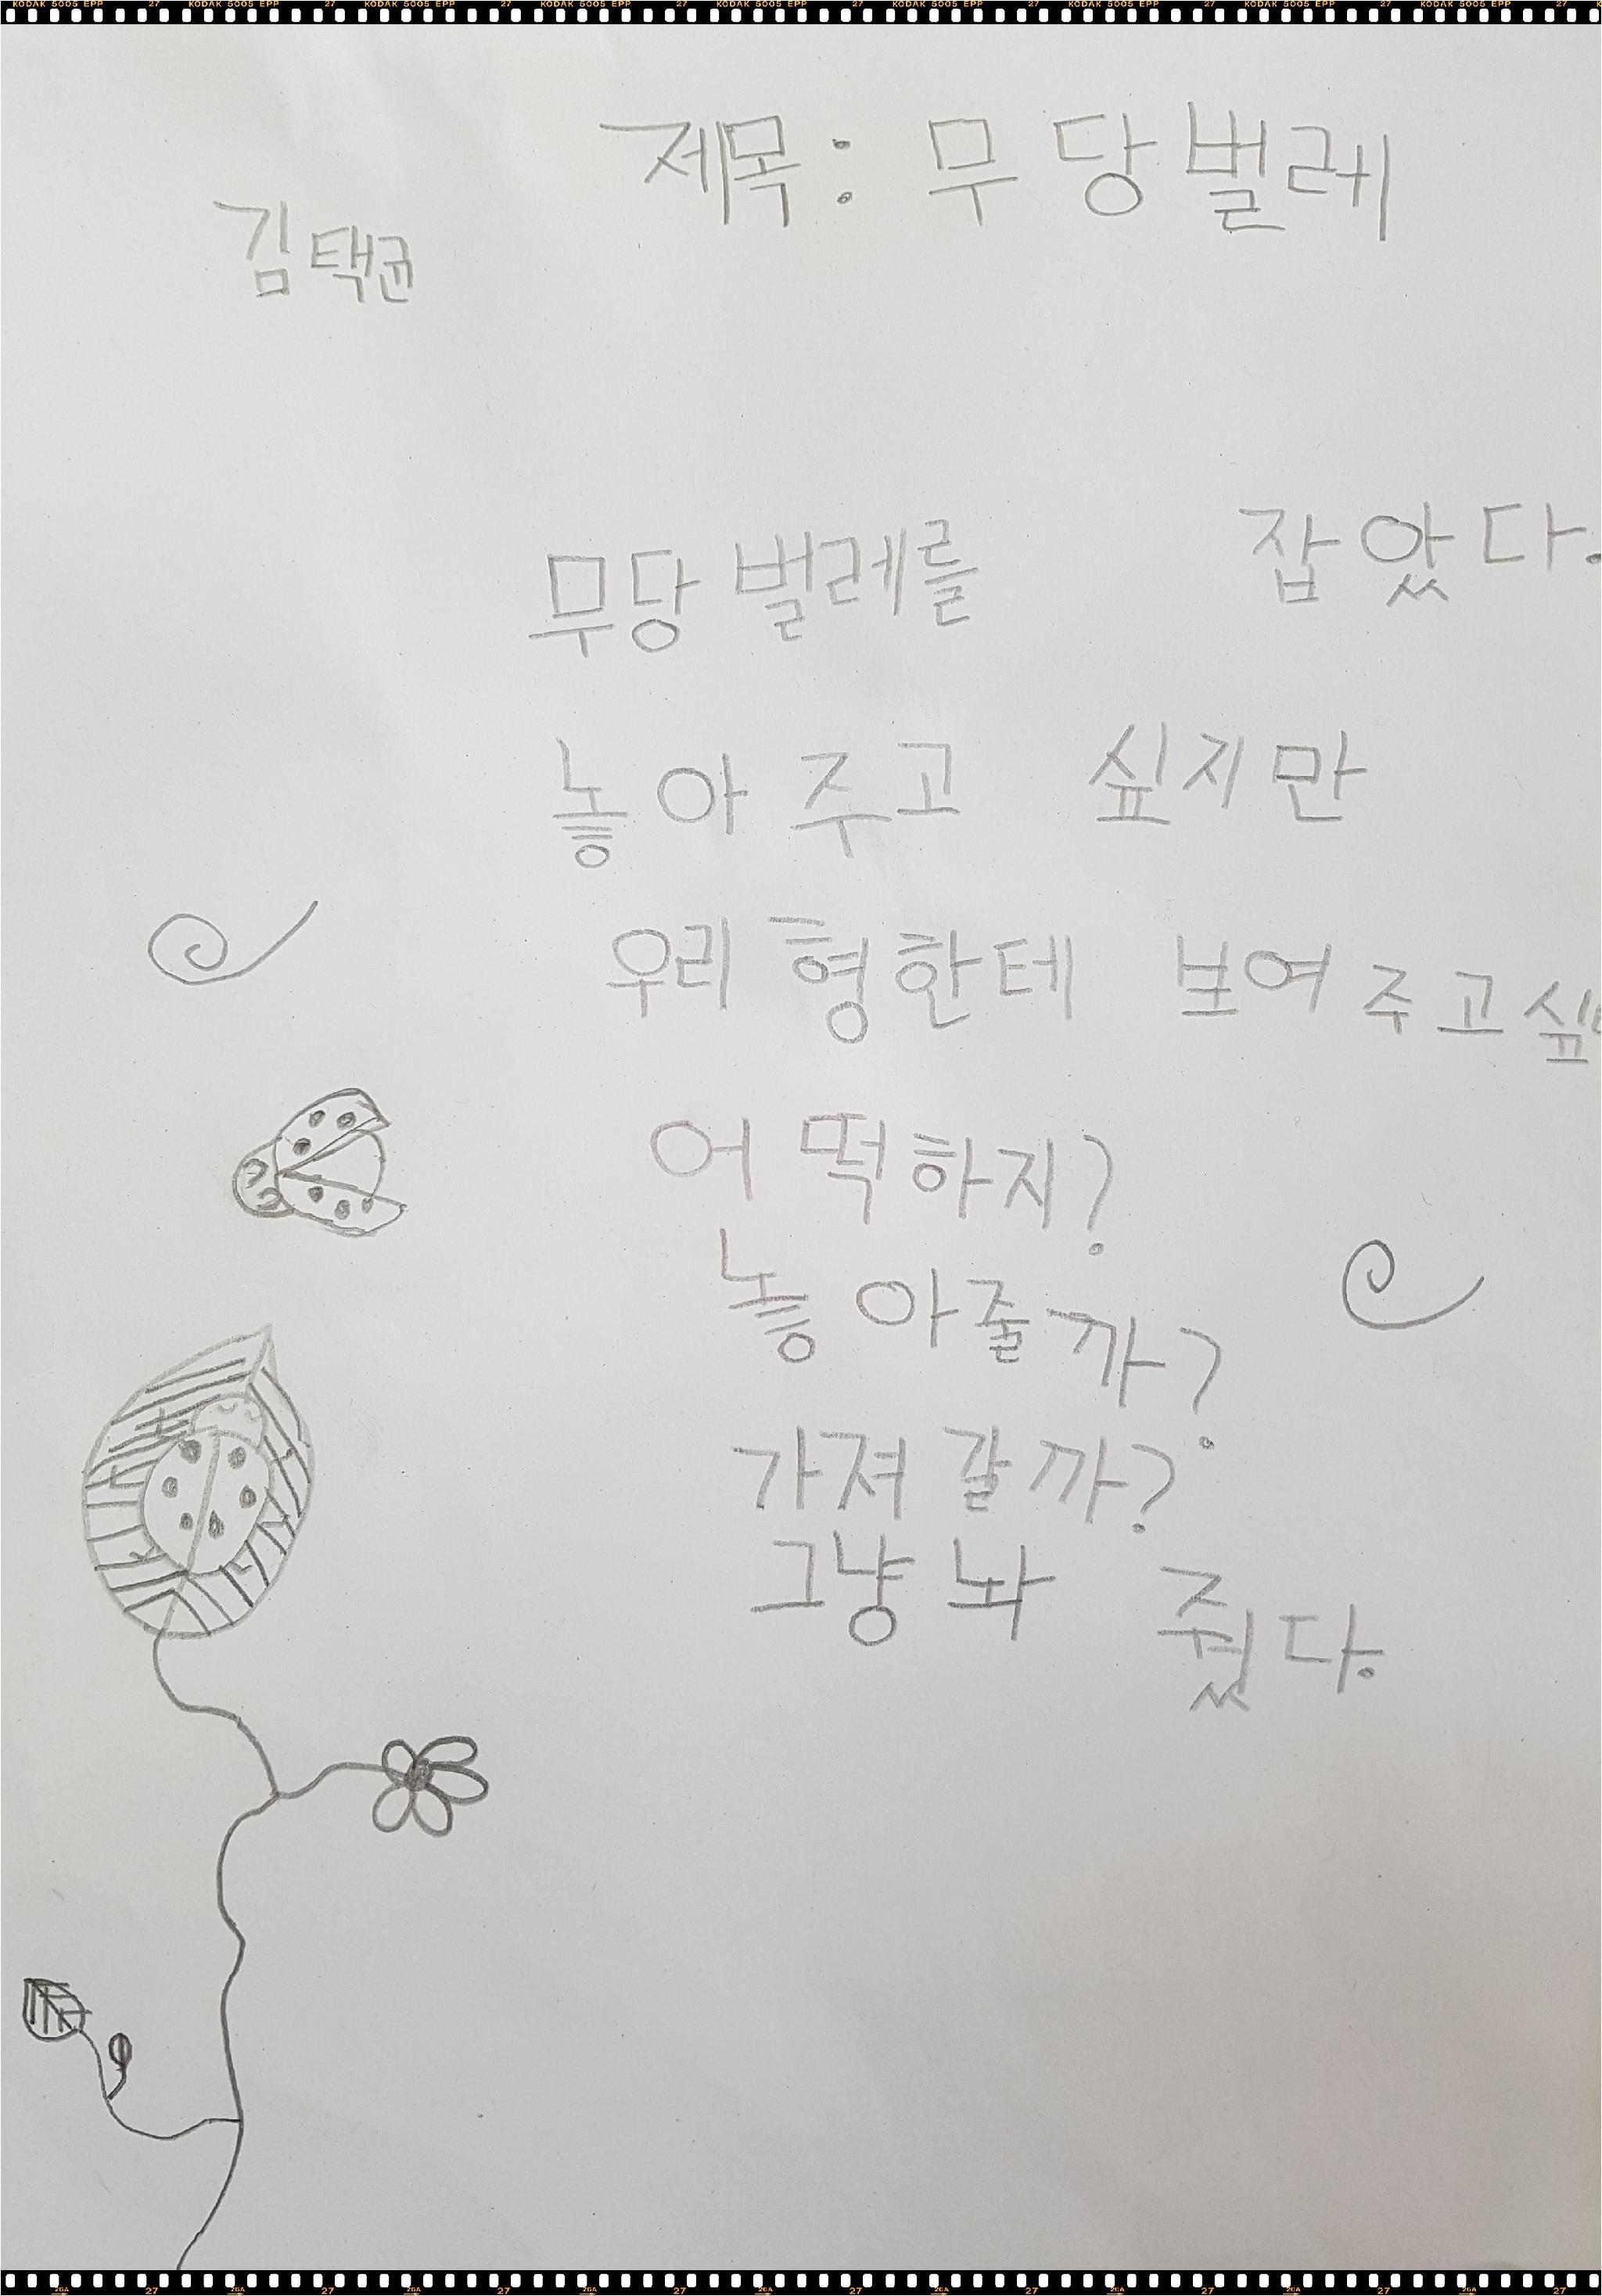 KODAK 5005 EPP 27 KODAK 5005 EPP 27 KODAK 5005 EPP 27 KODAK 5005 EPP 27 KODAK 5005 EPP 27 KODAK 5005 EPP 27 KODAK 5005 EPP 27 KODAK 5005 EPP 27 KODAK 5005 EPP 27
제목: 무당벌레
김택균
무당벌레를 잡았다.
놓아 주고 싶지만
우리 형한테 보여 주고싶
어떡하지?
놓아줄까?
가져갈까?
그냥 놔 줬다.
26A 27 26A 27 26A 27 26A 27 26A 27 26A 27 26A 27 26A 27 26A 27